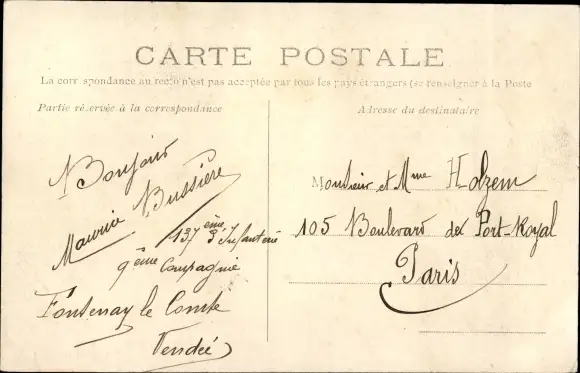 CARTE POSTALE
La correspondance au recto n'est pas acceptée par tous les pays étrangers (se renseigner à la Poste
Partie réservée à la correspondance
Bonjour
Maurice Bussière
137ème d'Infanterie
9ème Compagnie
Fontenay le Comte
Vendée
Adresse du destinataire
Monsieur et Mme Holzem
105 Boulevard de Port-Royal
Paris